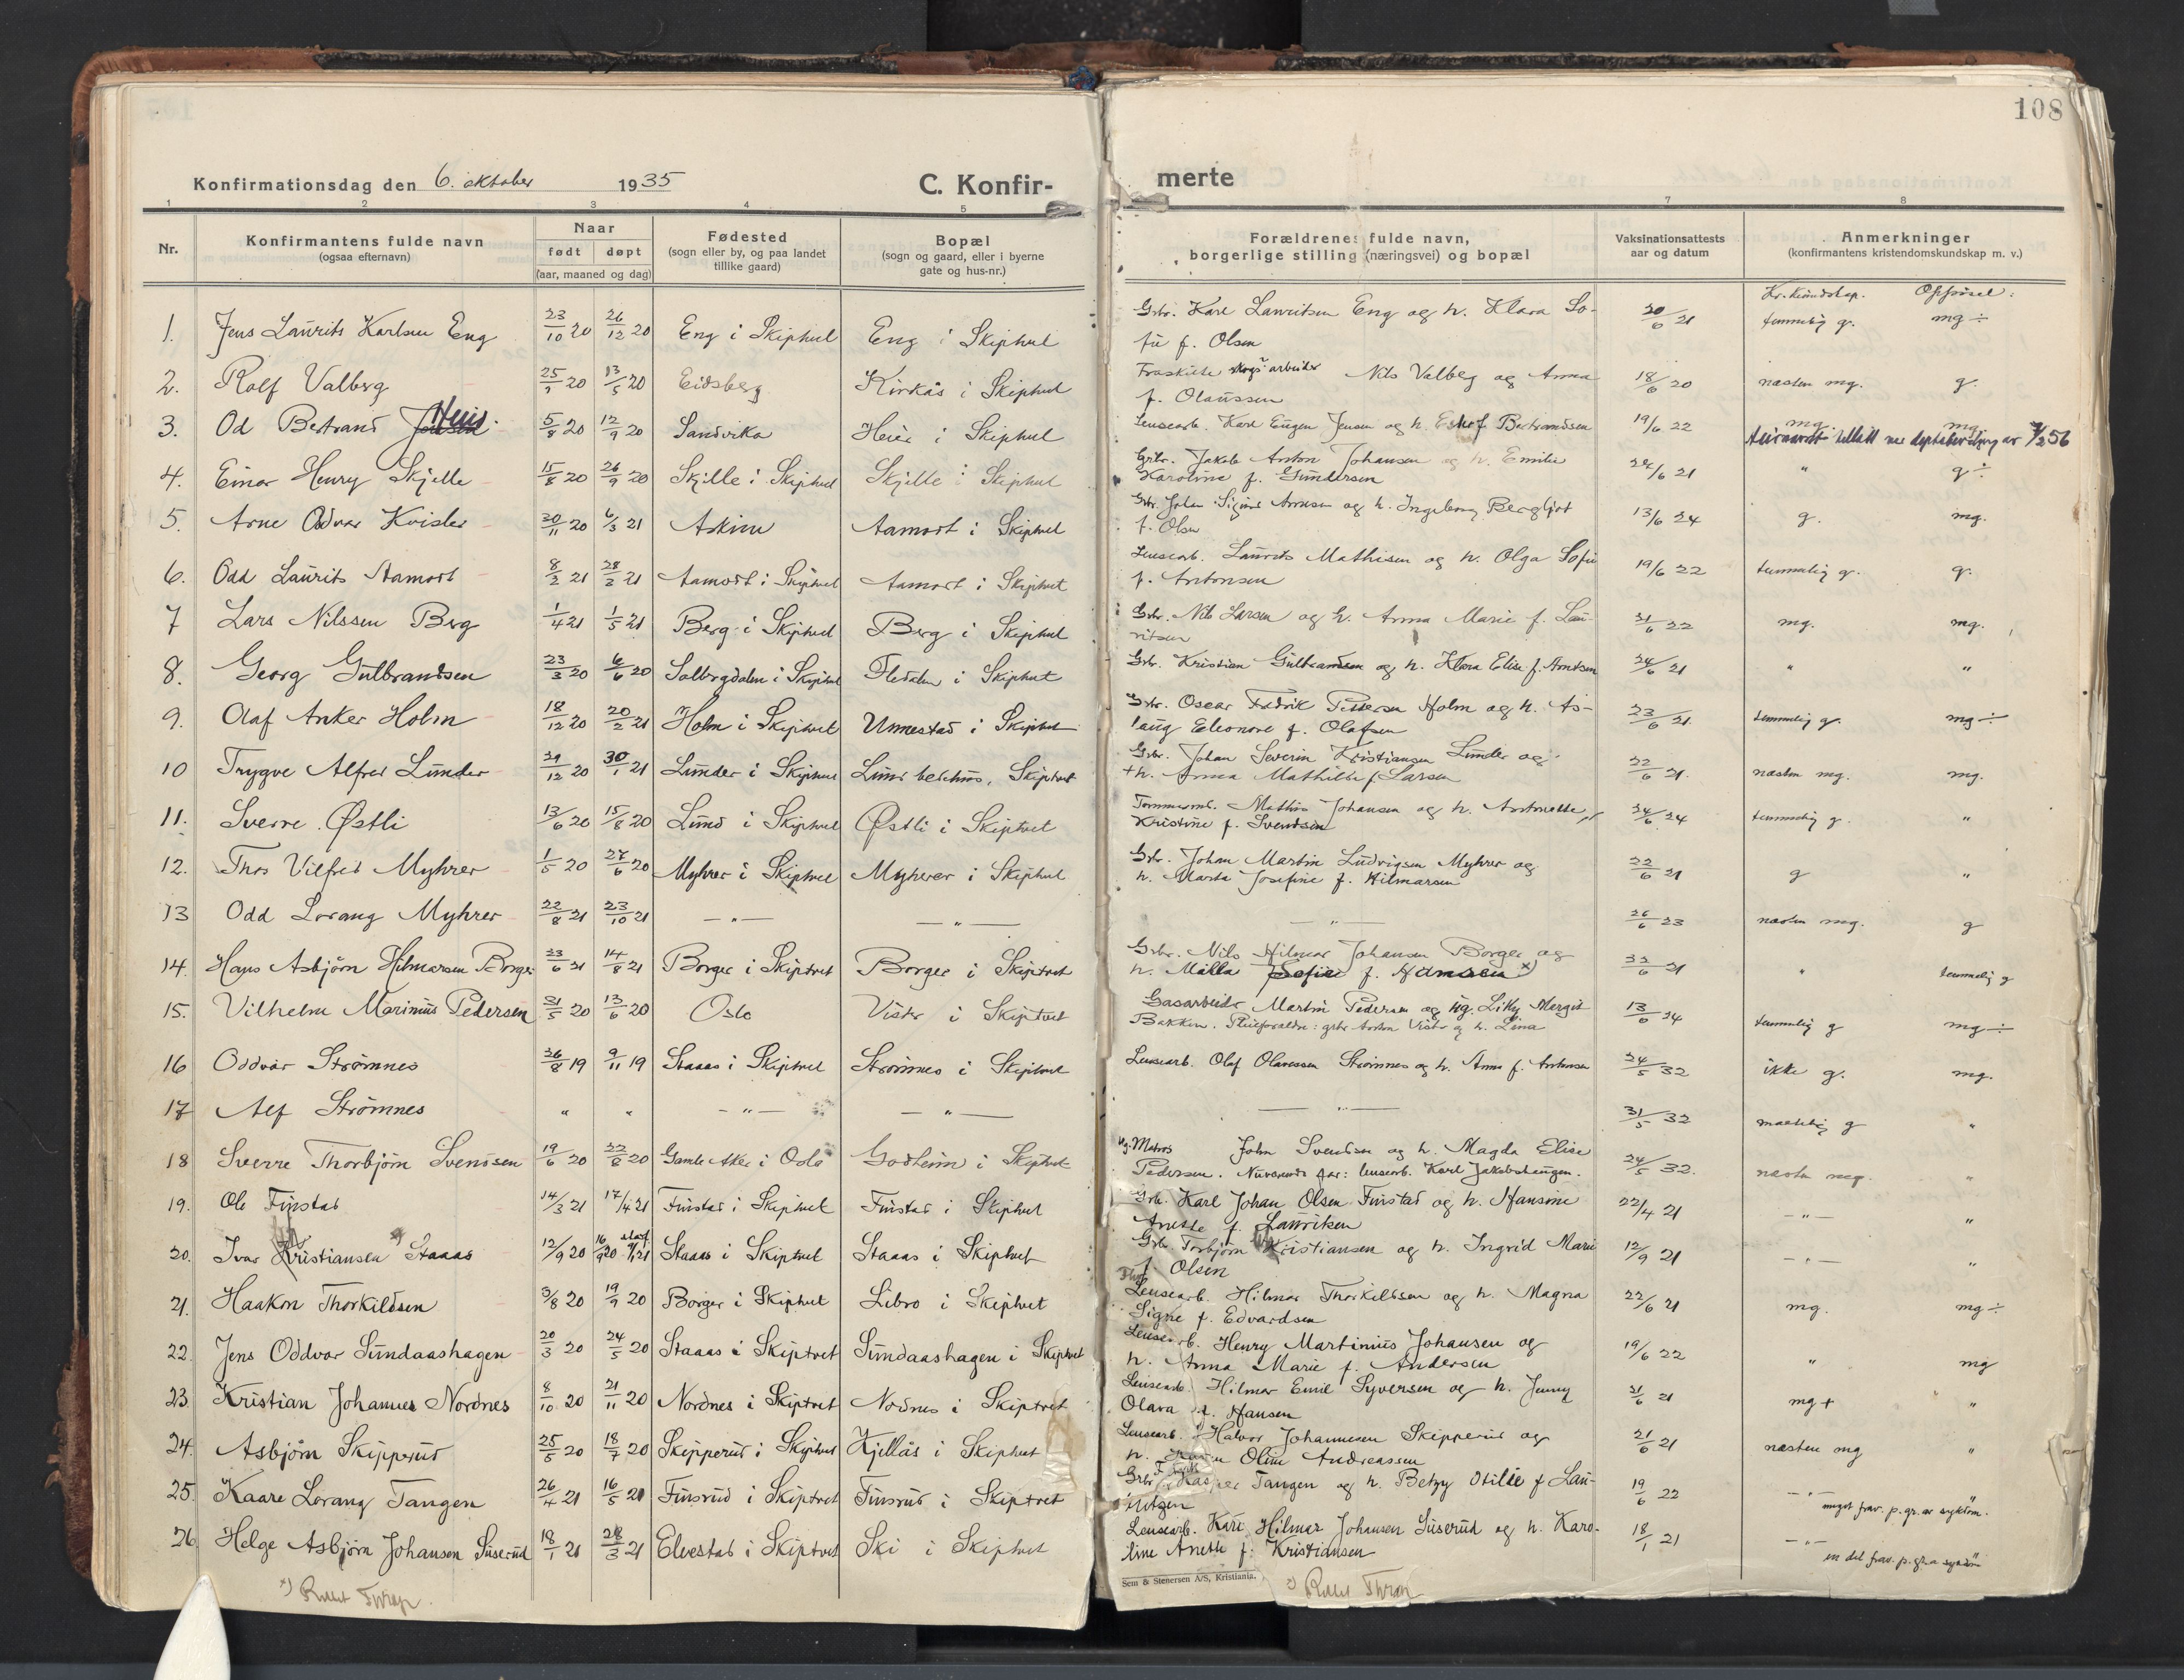 108
Konfirmationsdag den 6. oktober 1935
C. Konfir-
merte
1 2 3 4 5 7 8
Nr.
Konfirmantens fulde navn
(ogsaa efternavn)
Naar
født døpt
(aar, maaned og dag)
Fødested
(sogn eller by, og paa landet
tillike gaard)
Bopæl
(sogn og gaard, eller i byerne
gate og hus-nr.)
Forældrenes fulde navn,
borgerlige stilling (næringsvei) og bopæl
Vaksinationsattests
aar og datum
Anmerkninger
(konfirmantens kristendomskundskap m. v.)
Kr. kundskap. Opførsel:
1. Jens Laurits Karlsen Eng 23/10 20 26/12 20 Eng i Skiptvet Eng i Skiptvet Gbr. Karl Lauritsen Eng og h. Klara So- 20/6 21 temmelig g. mg ÷
fie f. Olsen
2. Rolf Valberg 25/1 20 13/5 20 Eidsberg Kirkås i Skiptvet Fraskilte skogsarbeider Nils Valberg og Anna 18/6 20 næsten mg. g.
f. Olaussen
3. Od Bertrand Jensen 5/8 20 12/9 20 Sandvika Heier i Skiptvet Lensearb. Karl Eugen Jensen og h. Ester f. Bertrandsen 19/6 22 mg. mg.
4. Einar Henry Skjelle 15/8 20 26/9 20 Skjille i Skiptvet Skjelle i Skiptvet Grbr. Jakob Anton Johansen og h. Emilie 24/6 21 " g ÷
Karoline f. Gundersen
5. Arne Odvar Kvisler 30/11 20 6/3 21 Askim Aamodt i Skiptvet Gbr. Johan Sigurd Arnesen og h. Ingeborg Bergljot 13/6 24 g. mg.
f. Olsen
6. Odd Laurits Aamodt 8/2 21 28/3 21 Aamodt i Skiptvet Aamodt i Skiptvet Lensearb. Laurits Mathisen og h. Olga Sofie 19/6 22 temmelig g. g.
f. Antonsen
7 Lars Nilssen Berg 1/4 21 1/5 21 Berg i Skiptvet Berg i Skiptvet Gbr. Nils Larsen og h. Anna Marie f. Lau- 21/6 22 mg. mg.
ritsen
8. Georg Gulbrandsen 23/3 20 6/6 20 Solbergdalen i Skiptvet Fledalen i Skiptvet Grb. Kristian Gulbrandsen og h. Klara Elise f. Arntsen 24/6 21 " "
9. Olaf Anker Holm 18/12 20 20/2 21 Holm i Skiptvet Unnestad i Skiptvet Gbr. Oscar Fredrik Pettersen Holm og h. As- 23/6 21. temmelig g. mg ÷
laug Eleonore f. Olafsen
10 Trygve Alfred Lunder 29/12 20 30/1 21 Lunder i Skiptvet Lund i Skiptvet Grbr. Johan Severin Kristiansen Lunder og 22/6 21. næsten mg. mg.
+ h. Anna Mathilde f. Larsen
11. Sverre Østli 13/6 20 15/8 20 Lund i Skiptvet Østli i Skiptvet Tømmerm. Mathis Johansen og h. Antonette 24/6 24 temmelig g. "
Kristine f. Svendsen
12. Thor Vilfred Myhrer 1/5 20 27/6 20 Myhrer i Skiptvet Myhrer i Skiptvet Gbr. Johan Martin Ludvigsen Myhrer og 22/6 21 g "
h. Marta Josefine f. Hilmarsen
13 Odd Lorang Myhrer 22/8 21 23/10 21 — " — — " — — " — 26/6 23 næsten mg. g
14. Hans Asbjørn Hilmarsen Borger 23/6 21 14/8 21 Borger i Skiptvet Borger i Skiptvet Grbr. Nils Hilmar Johansen Borger og 22/6 21 " temmelig g
h. Milla Sofie f. Adamsen x)
15. Vilhelm Marinius Pedersen 31/5 20 13/6 20 Oslo Vister i Skiptvet Gasarbeider Martin Pedersen og ug. Lilly Margit 13/6 24 temmelig g mg ÷
Bakken. Pleieforældre: gbr Anton Vister og h. Lina
16 Oddvar Strømnes 26/8 19 9/11 19 Staaas i Skiptvet Strømnes i Skiptvet Lensearb. Olaf Olaussen Strømnes og h. Anna f. Antonsen 24/5 32 ikke g. mg.
17 Alf Strømnes " " — " — — " — — " — 31/5 32 maatelig g "
18 Sverre Thorbjørn Svendsen 19/6 20 22/8 20 Gamle Aker i Oslo Godheim i Skiptvet Ug. Matros John Svendsen og h. Magda Elise 24/5 32. næsten meg. "
Pedersen. Nuværende far: lensearb. Karl Jakobshaugen.
19. Ole Finstad 14/3 21 17/4 21 Finstad i Skiptvet Finstad i Skiptvet Grb. Karl Johan Olsen Finstad og h. Hansine 22/4 21 — " — "
Anette f. Lauritsen
20. Ivar Kristiansen Staaas 12/9 20 Staaas i Skiptvet Staaas i Skiptvet Grb. Torbjørn Kristiansen og h. Ingrid Marie 12/9 21 — " — "
f. Olsen
21. Haakon Thorkildsen 3/8 20 19/9 20 Borger i Skiptvet Libro i Skiptvet Lensearb. Hilmar Thorkildsen og h. Magna 22/6 21 mg. mg ÷
Signe f. Edvardsen
22. Jens Oddvar Sundaashagen 20/3 20 24/5 20 Staaas i Skiptvet Sundaashagen i Skiptvet Lensearb. Henry Martinius Johansen og 19/6 22 " mg
h. Anna Marie f. Andersen
23. Kristian Johannes Nordnes 8/10 20 21/11 20 Nordnes i Skiptvet Nordnes i Skiptvet Lensearb. Hilmar Emil Syversen og h. Jenny 21/6 21 mg + "
Olava f. Hansen
24. Asbjørn Skipperud 25/5 20 18/7 20 Skipperud i Skiptvet Kjellås i Skiptvet Lensearb. Halvor Johannesen Skipperud og 21/6 21 næsten mg "
h. Karen Oline Andreassen
25. Kaare Lorang Tangen 26/4 21 16/5 21 Finsrud i Skiptvet Finsrud i Skiptvet Grbr. Kasper Tangen og h. Betzy Otilie f. Lau- 19/6 22 — " — "
ritzen
meget frav. p. gr. av sykdom.
26. Helge Asbjørn Johansen Suserud 18/1 21 28/3 21 Elvestad i Skiptvet Ski i Skiptvet Lensearb. Karl Hilmar Johansen Suserud og h. Karo- 18/1 21 — " — "
line Anette f. Kristiansen
en del frav. p. gr. a sykdom
Sem & Stenersen A/S, Kristiania.